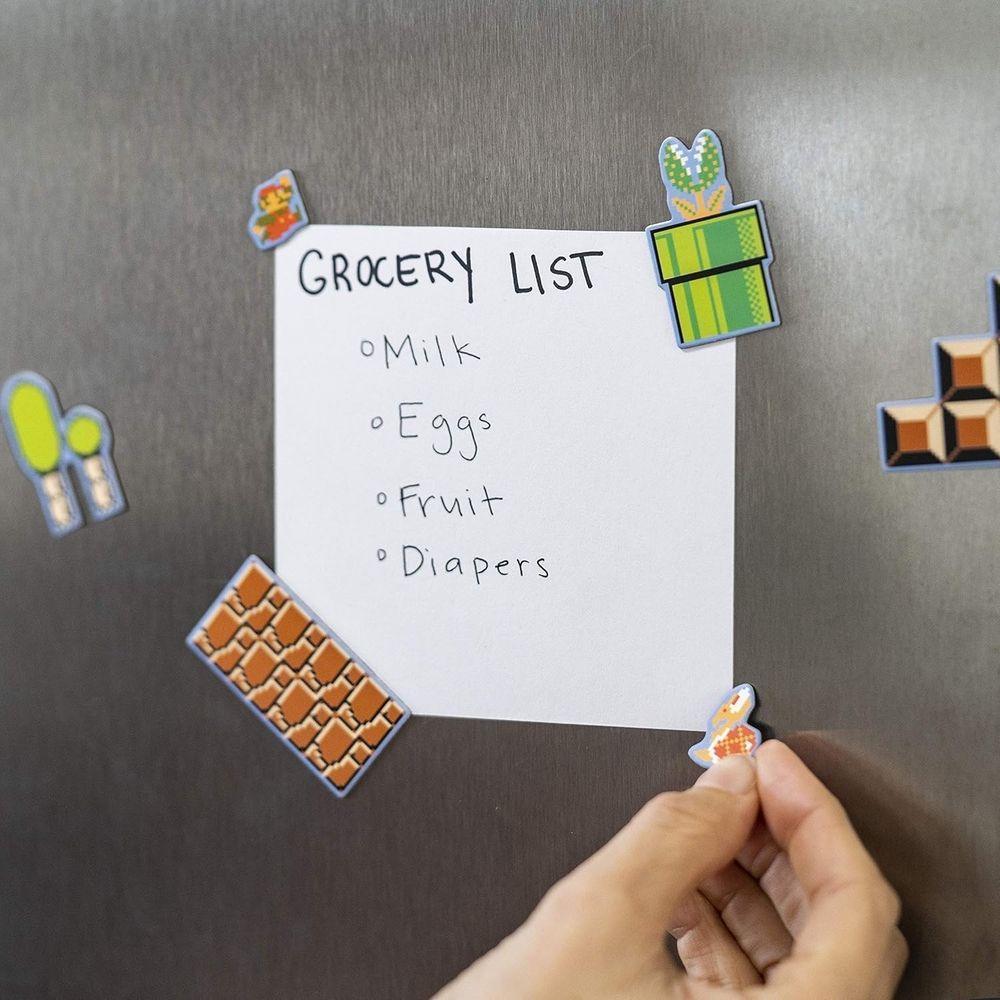 GROCERY LIST
Milk
Eggs
Fruit
Diapers